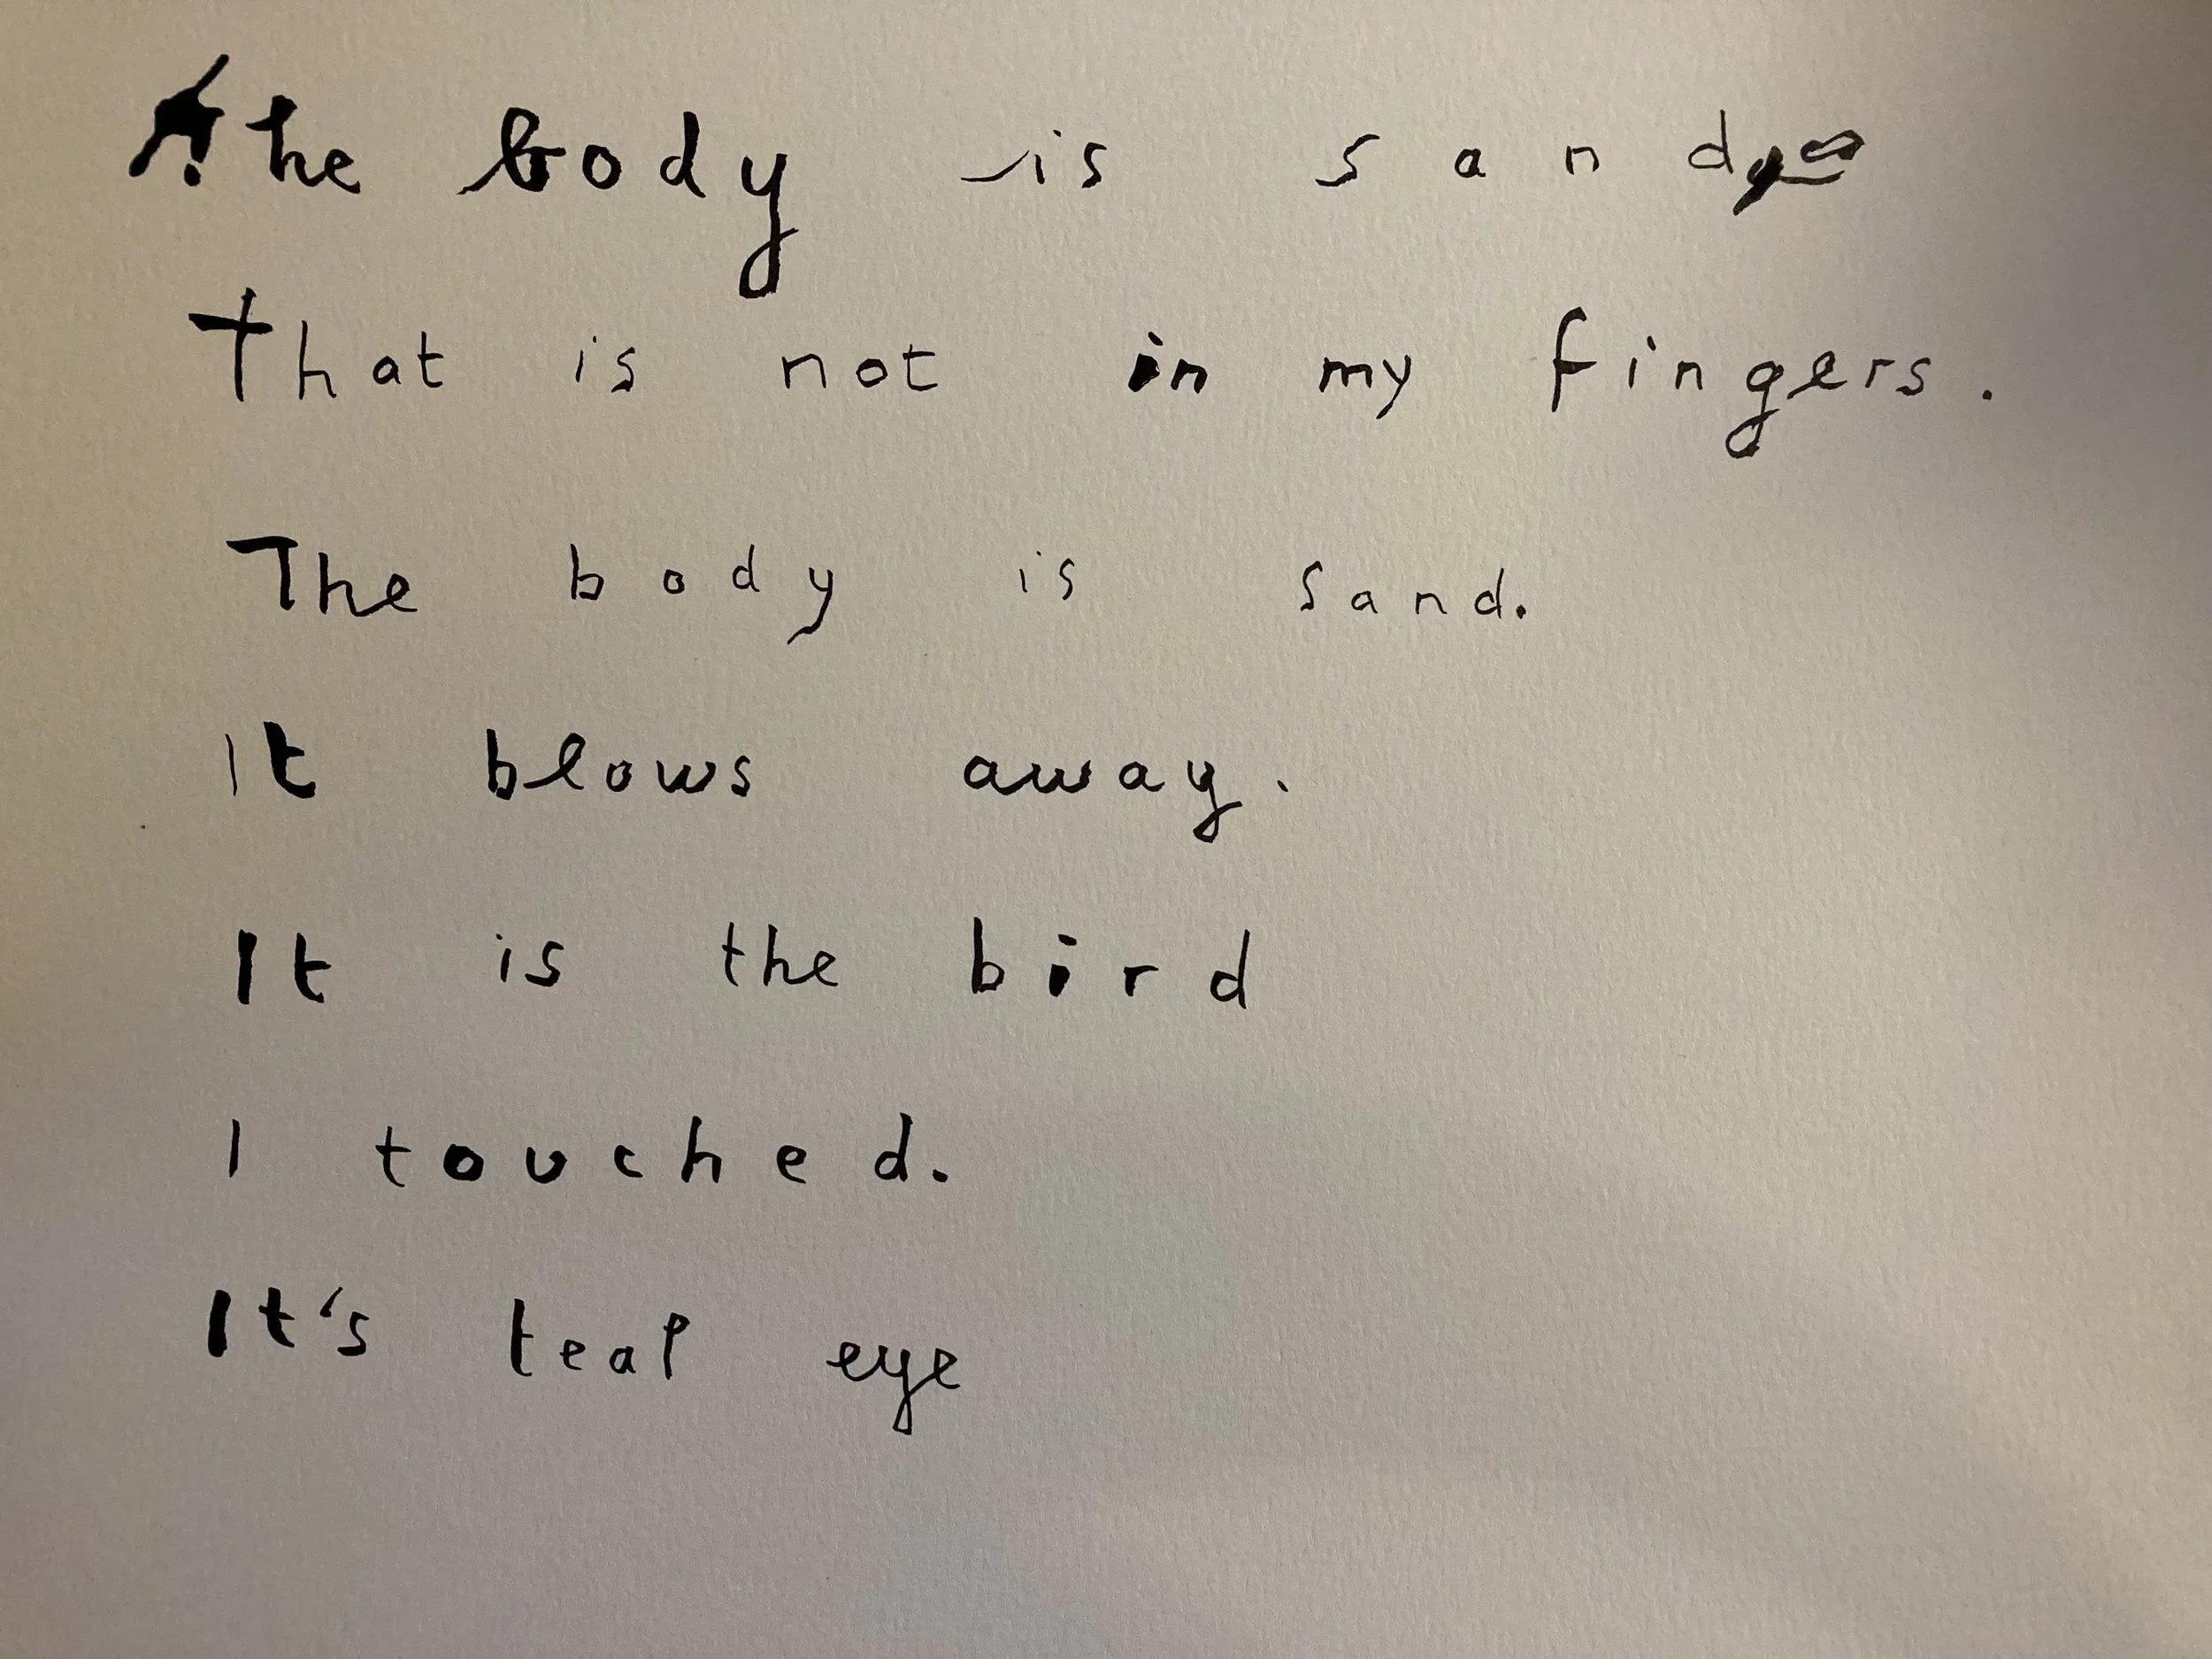 the body is sand
That is not in my fingers.
The body is sand.
It blows away.
It is the bird
I touched.
It's teal eye